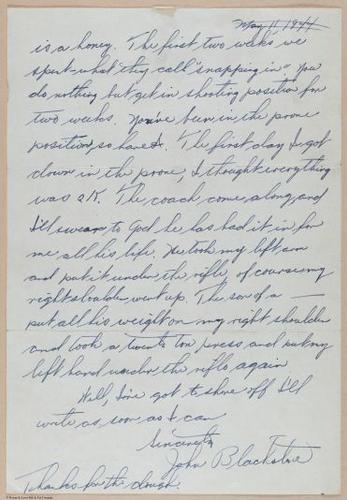 May 11, 1944
is a honey. The first two weeks we
spent what they call "snapping in" You
do nothing but get in shooting position for
two weeks. You've been in the prone
position, so have I. The first day I got
down in the prone, I thought everything
was O.K. The coach come along and
I'll swear to God he has had it in for
me all his life. He took my left arm
and put it under the rifle, of course my
right shoulder went up. The son of a —
put all his weight on my right shoulder
and took a twenty ton press and put my
left hand under the rifle again
Well, I've got to shove off I'll
write as soon as I can
Sincerely
John Blackstone
Thanks for the dough.